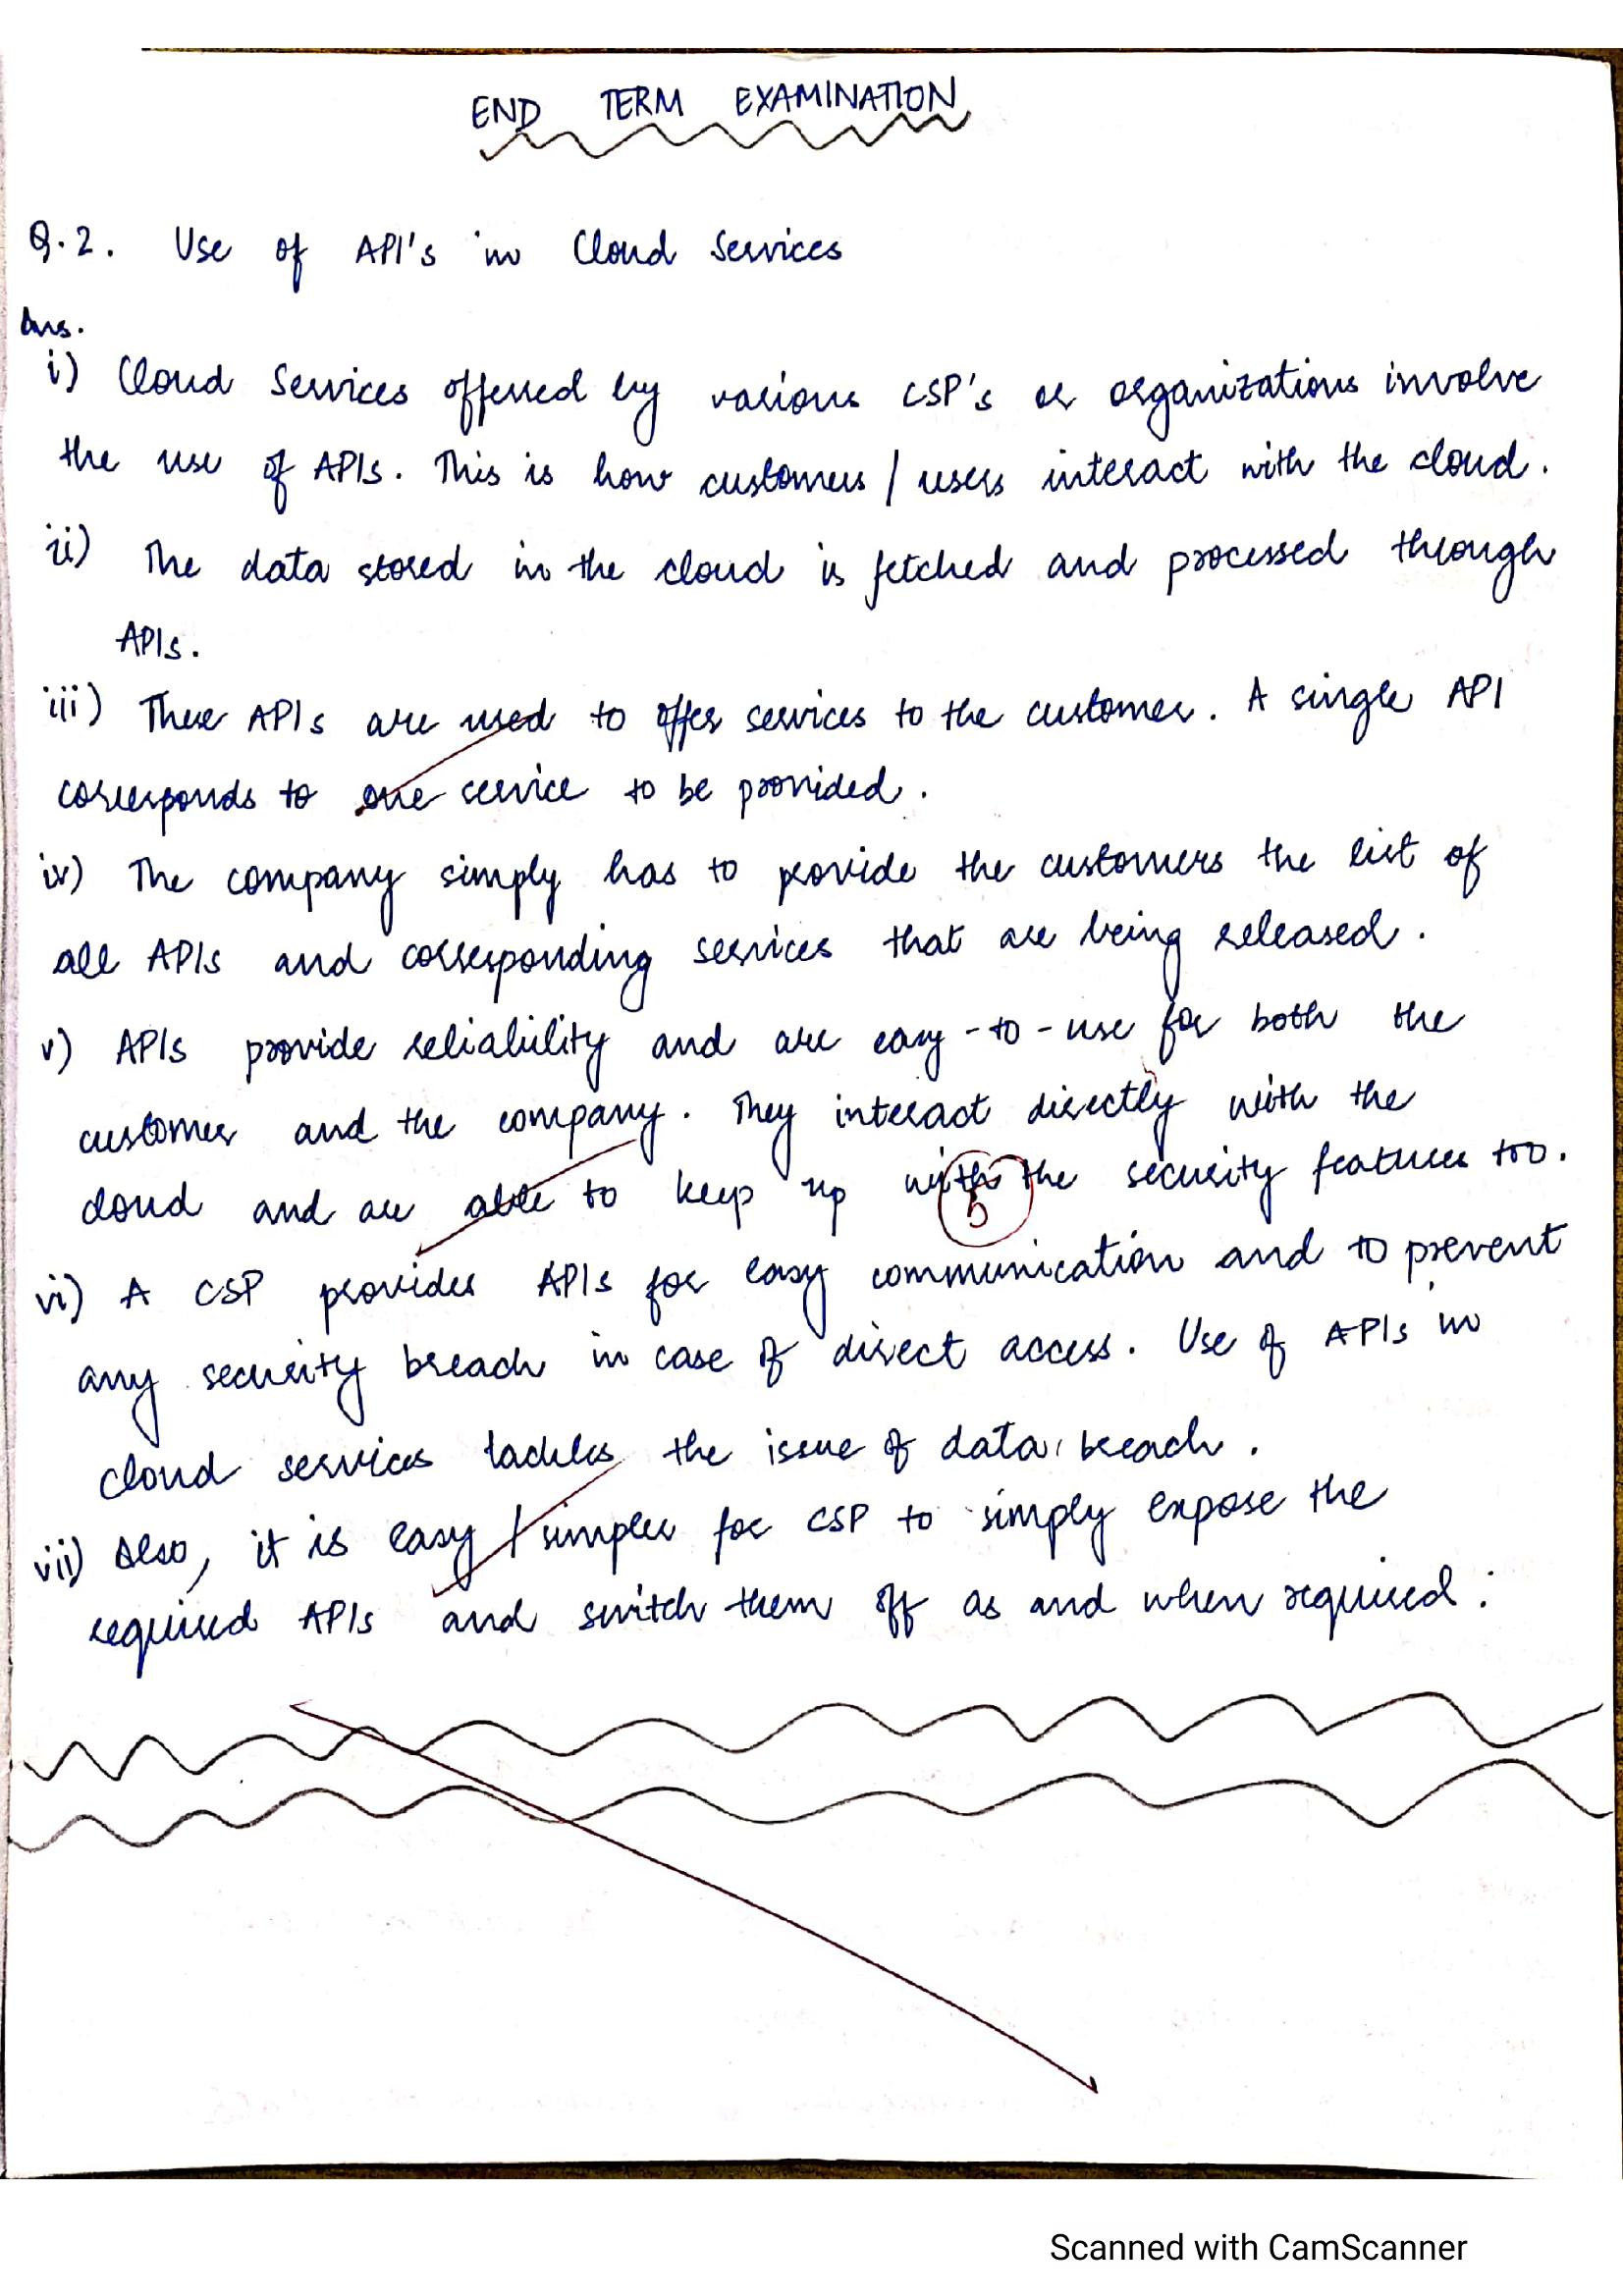 END TERM EXAMINATION
Q.2. Use of API's in Cloud Services
Ans.
i) Cloud Services offered by various CSP's or organizations involve
the use of APIs. This is how customers / users interact with the cloud.
ii) The data stored in the cloud is fetched and processed through
APIs.
iii) These APIs are used to offer services to the customer. A single API
corresponds to one service to be provided.
iv) The company simply has to provide the customers the list of
all APIs and corresponding services that are being released.
v) APIs provide reliability and are easy-to-use for both the
customer and the company. They interact directly with the
cloud and are able to keep up with the security features too.
5
vi) A CSP provides APIs for easy communication and to prevent
any security breach in case of direct access. Use of APIs in
cloud services tackles the issue of data breach.
vii) Also, it is easy / simpler for CSP to simply expose the
required APIs and switch them off as and when required.
Scanned with CamScanner